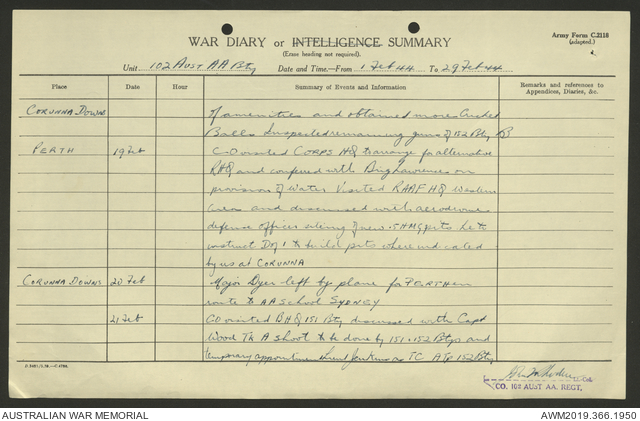 Army Form C.2118
(adapted.)
WAR DIARY or INTELLIGENCE SUMMARY
(Erase heading not required).
2.
Unit 102 AUST AA Bty Date and Time.—From 1 Feb 44 To 29 Feb 44
Place Date Hour Summary of Events and Information Remarks and references to Appendices, Diaries, &c.
CORUNNA DOWNS of amenities and obtained more Cricket
Balls Inspected remaining guns of 152 Bty B
PERTH 19 Feb CO visited CORPS HQ to arrange for alternative
RHQ and conferred with Brig Lawrence on
provision of water Visited RAAF HQ Western
Area and discussed with aerodrome
defence officer siting of new .5 HMG pits he to
instruct to build pits where indicated
by us at CORUNNA
CORUNNA DOWNS 20 Feb Major Dyer left by plane for PERTH en
route to AA School SYDNEY
21 Feb CO visited BHQ 151 Bty discussed with Capt
Wood Tk A shoot to be done by 151 & 152 Btys and
temporary appointment Lieut Jenkins as TC A Tp 152 Bty
CO. 102 AUST AA. REGT.
AUSTRALIAN WAR MEMORIAL AWM2019.366.1950